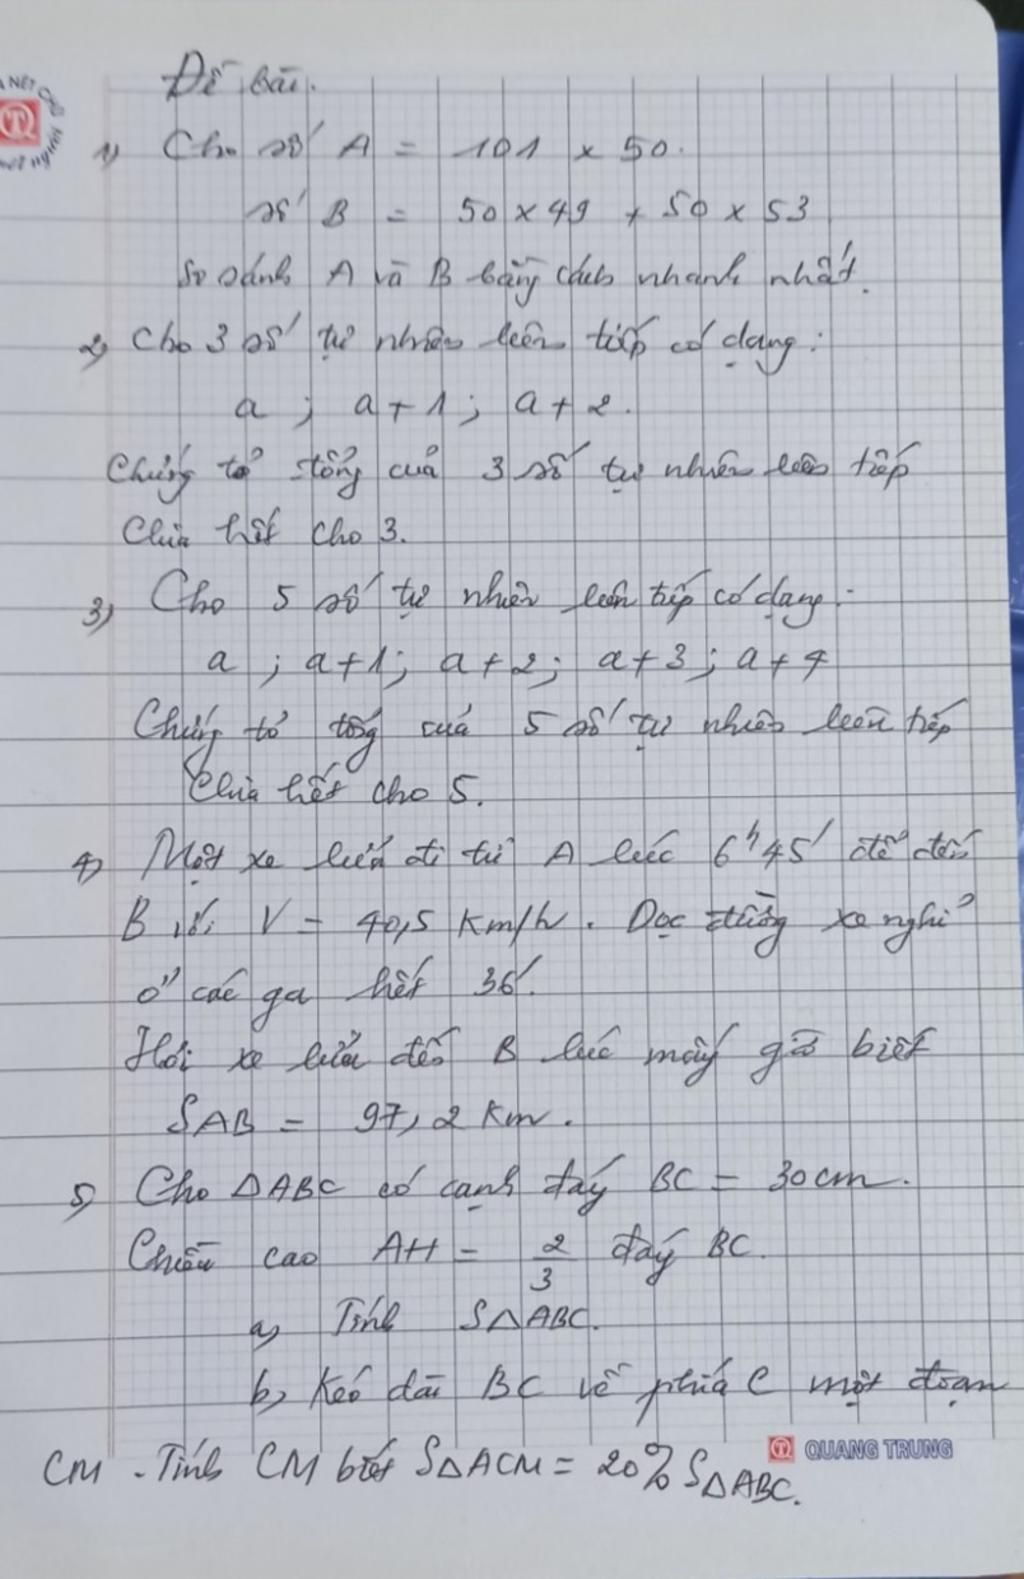 Đề bài.
1) Cho số A = 101 x 50.
số B = 50 x 49 + 50 x 53
So sánh A và B bằng cách nhanh nhất.
2) Cho 3 số tự nhiên liên tiếp có dạng:
a ; a+1 ; a+2.
Chứng tỏ tổng của 3 số tự nhiên liên tiếp
Chia hết cho 3.
3) Cho 5 số tự nhiên liên tiếp có dạng:
a ; a+1 ; a+2 ; a+3 ; a+4
Chứng tỏ tổng của 5 số tự nhiên liên tiếp
Chia hết cho 5.
4) Một xe lửa đi từ A lúc 6h45' để đến
B với V = 40,5 Km/h. Dọc đường xe nghỉ
ở các ga hết 36'.
Hỏi xe lửa đến B lúc mấy giờ biết
SAB = 97,2 Km.
5) Cho △ABC có cạnh đáy BC = 30cm.
Chiều cao AH = 2/3 đáy BC.
a) Tính S△ABC.
b) Kéo dài BC về phía C một đoạn
QUANG TRUNG
CM. Tính CM biết S△ACM = 20% S△ABC.